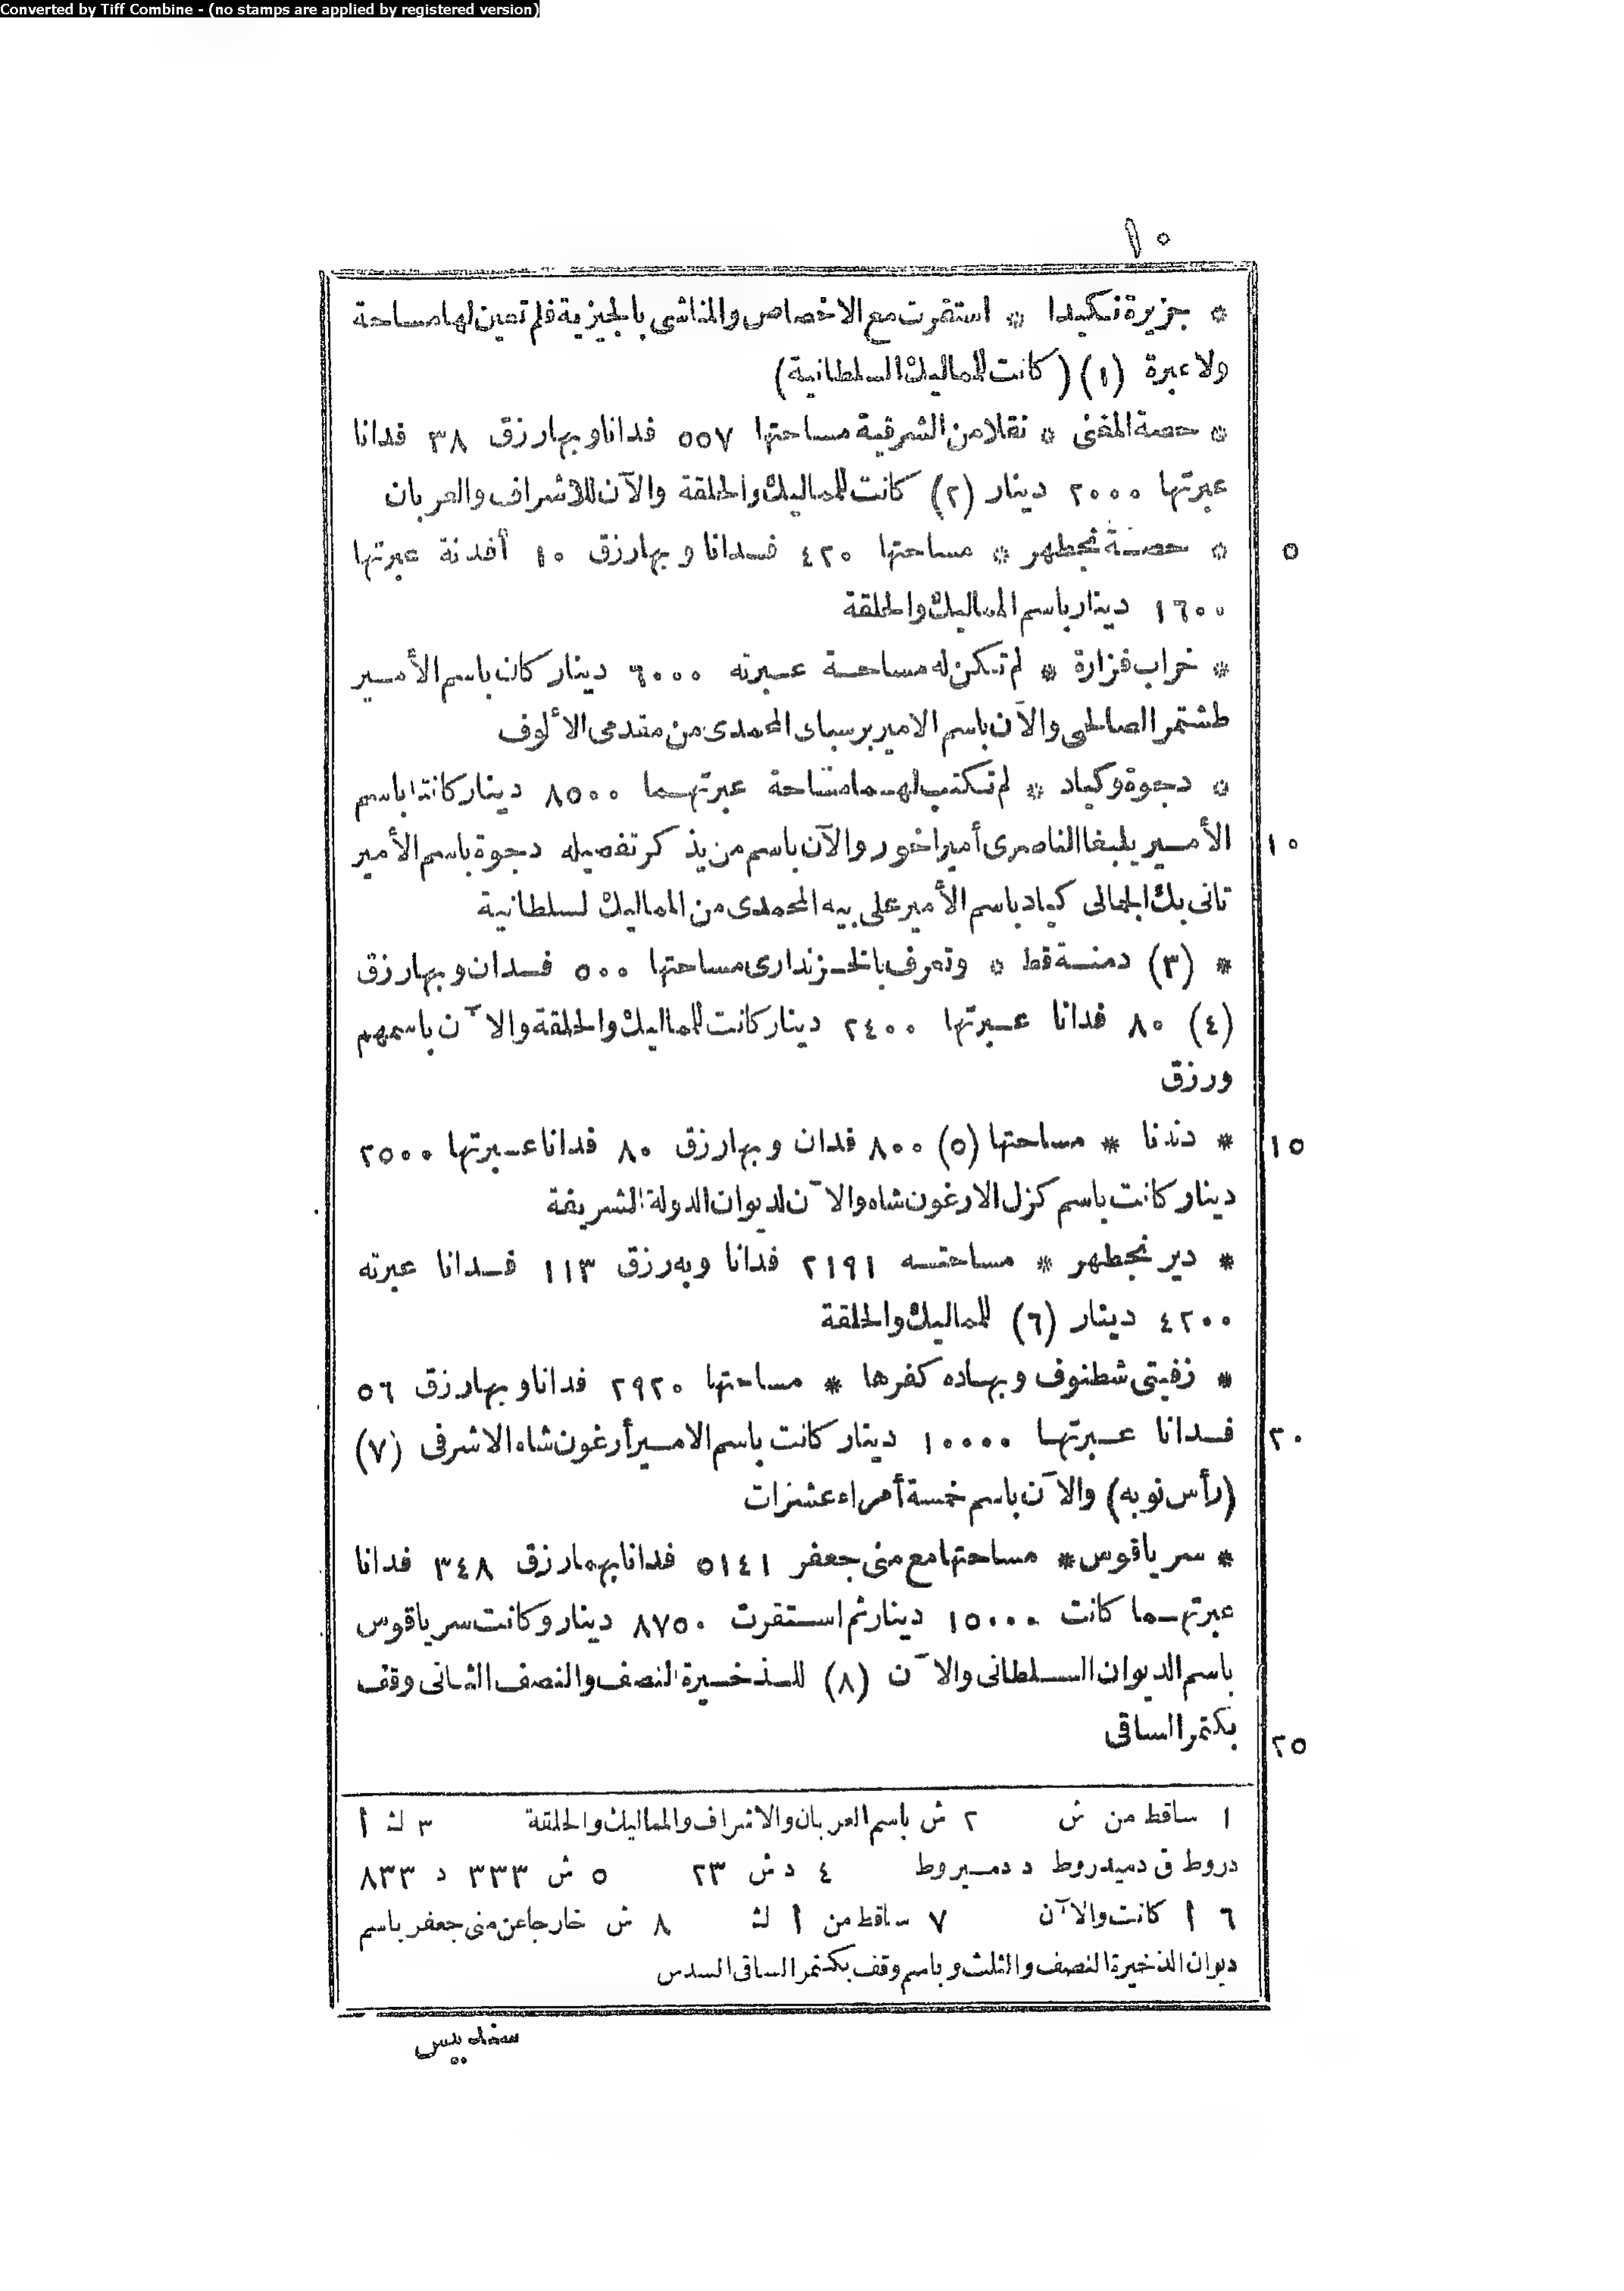 Converted by Tiff Combine - (no stamps are applied by registered version)
١٠
* جزيرة نكيدا * استقرت مع الاخصاص والمناشى بالجيزية فلم تعين لها مساحة
ولا عبرة (١) (كانت للماليك السلطانية)
* حصة المغنى * نقلا من الشرقية مساحتها ٥٥٧ فدانا وبها رزق ٣٨ فدانا
عبرتها ٢٠٠٠ دينار (٢) كانت للماليك والحلقة والآن للاشراف والعربان
* حصة نجطهر * مساحتها ٤٢٠ فدانا وبها رزق ١٠ أفدنة عبرتها
٥
١٦٠٠ دينار باسم المماليك والحلقة
* خراب فزارة * لم تكن له مساحة عبرته ٦٠٠٠ دينار كان باسم الأمير
طشتمر الصالحى والآن باسم الامير برسباى المحمدى من مقدمى الألوف
* دجوة وكياد * لم تكتب لهما مساحة عبرتهما ٨٥٠٠ دينار كانتا باسم
الأمير يلبغا الناصرى أمير اخور والآن باسم من يذكر تفصيله دجوة باسم الأمير
١٠
تانى بك الجمالى كياد باسم الأمير على بيه المحمدى من المماليك لسلطانية
* (٣) دمنة قط * وتعرف بالخزندارى مساحتها ٥٠٠ فدان وبها رزق
(٤) ٨٠ فدانا عبرتها ٢٤٠٠ دينار كانت للماليك والحلقة والآن باسمهم
ورزق
* دندنا * مساحتها (٥) ٨٠٠ فدان وبها رزق ٨٠ فدانا عبرتها ٢٥٠٠
١٥
دينار كانت باسم كزل الارغون شاه والآن لديوان الدولة الشريفة
* دير نجطهر * مساحته ٢١٩١ فدانا وبه رزق ١١٣ فدانا عبرته
٤٢٠٠ دينار (٦) للماليك والحلقة
* زفيتى شطنوف وبهاده كفرها * مساحتها ٢٩٢٠ فدانا وبها رزق ٥٦
فدانا عبرتها ١٠٠٠٠ دينار كانت باسم الامير أرغون شاه الاشرفى (٧)
٢٠
(رأس نوبه) والآن باسم خمسة أمراء عشرات
* سرياقوس * مساحتها مع منى جعفر ٥١٤١ فدانا بهما رزق ٣٤٨ فدانا
عبرتهما كانت ١٥٠٠٠ دينار ثم استقرت ٨٧٥٠ دينار وكانت سرياقوس
باسم الديوان السلطانى والآن (٨) للذخيرة النصف والنصف الثانى وقف
بكتمر الساقى
٢٥
١ ساقط من ش ٢ ش باسم العربان والاشراف والمماليك والحلقة ٣ ك أ
دروط ق دميدروط د دميروط ٤ د ش ٢٣ ٥ ش ٣٣٣ د ٨٣٣
٦ أ كانت والآن ٧ ساقط من أ ك ٨ ش خارجا عن منى جعفر باسم
ديوان الذخيرة النصف والثلث وباسم وقف بكتمر الساقى السدس
سنديبس